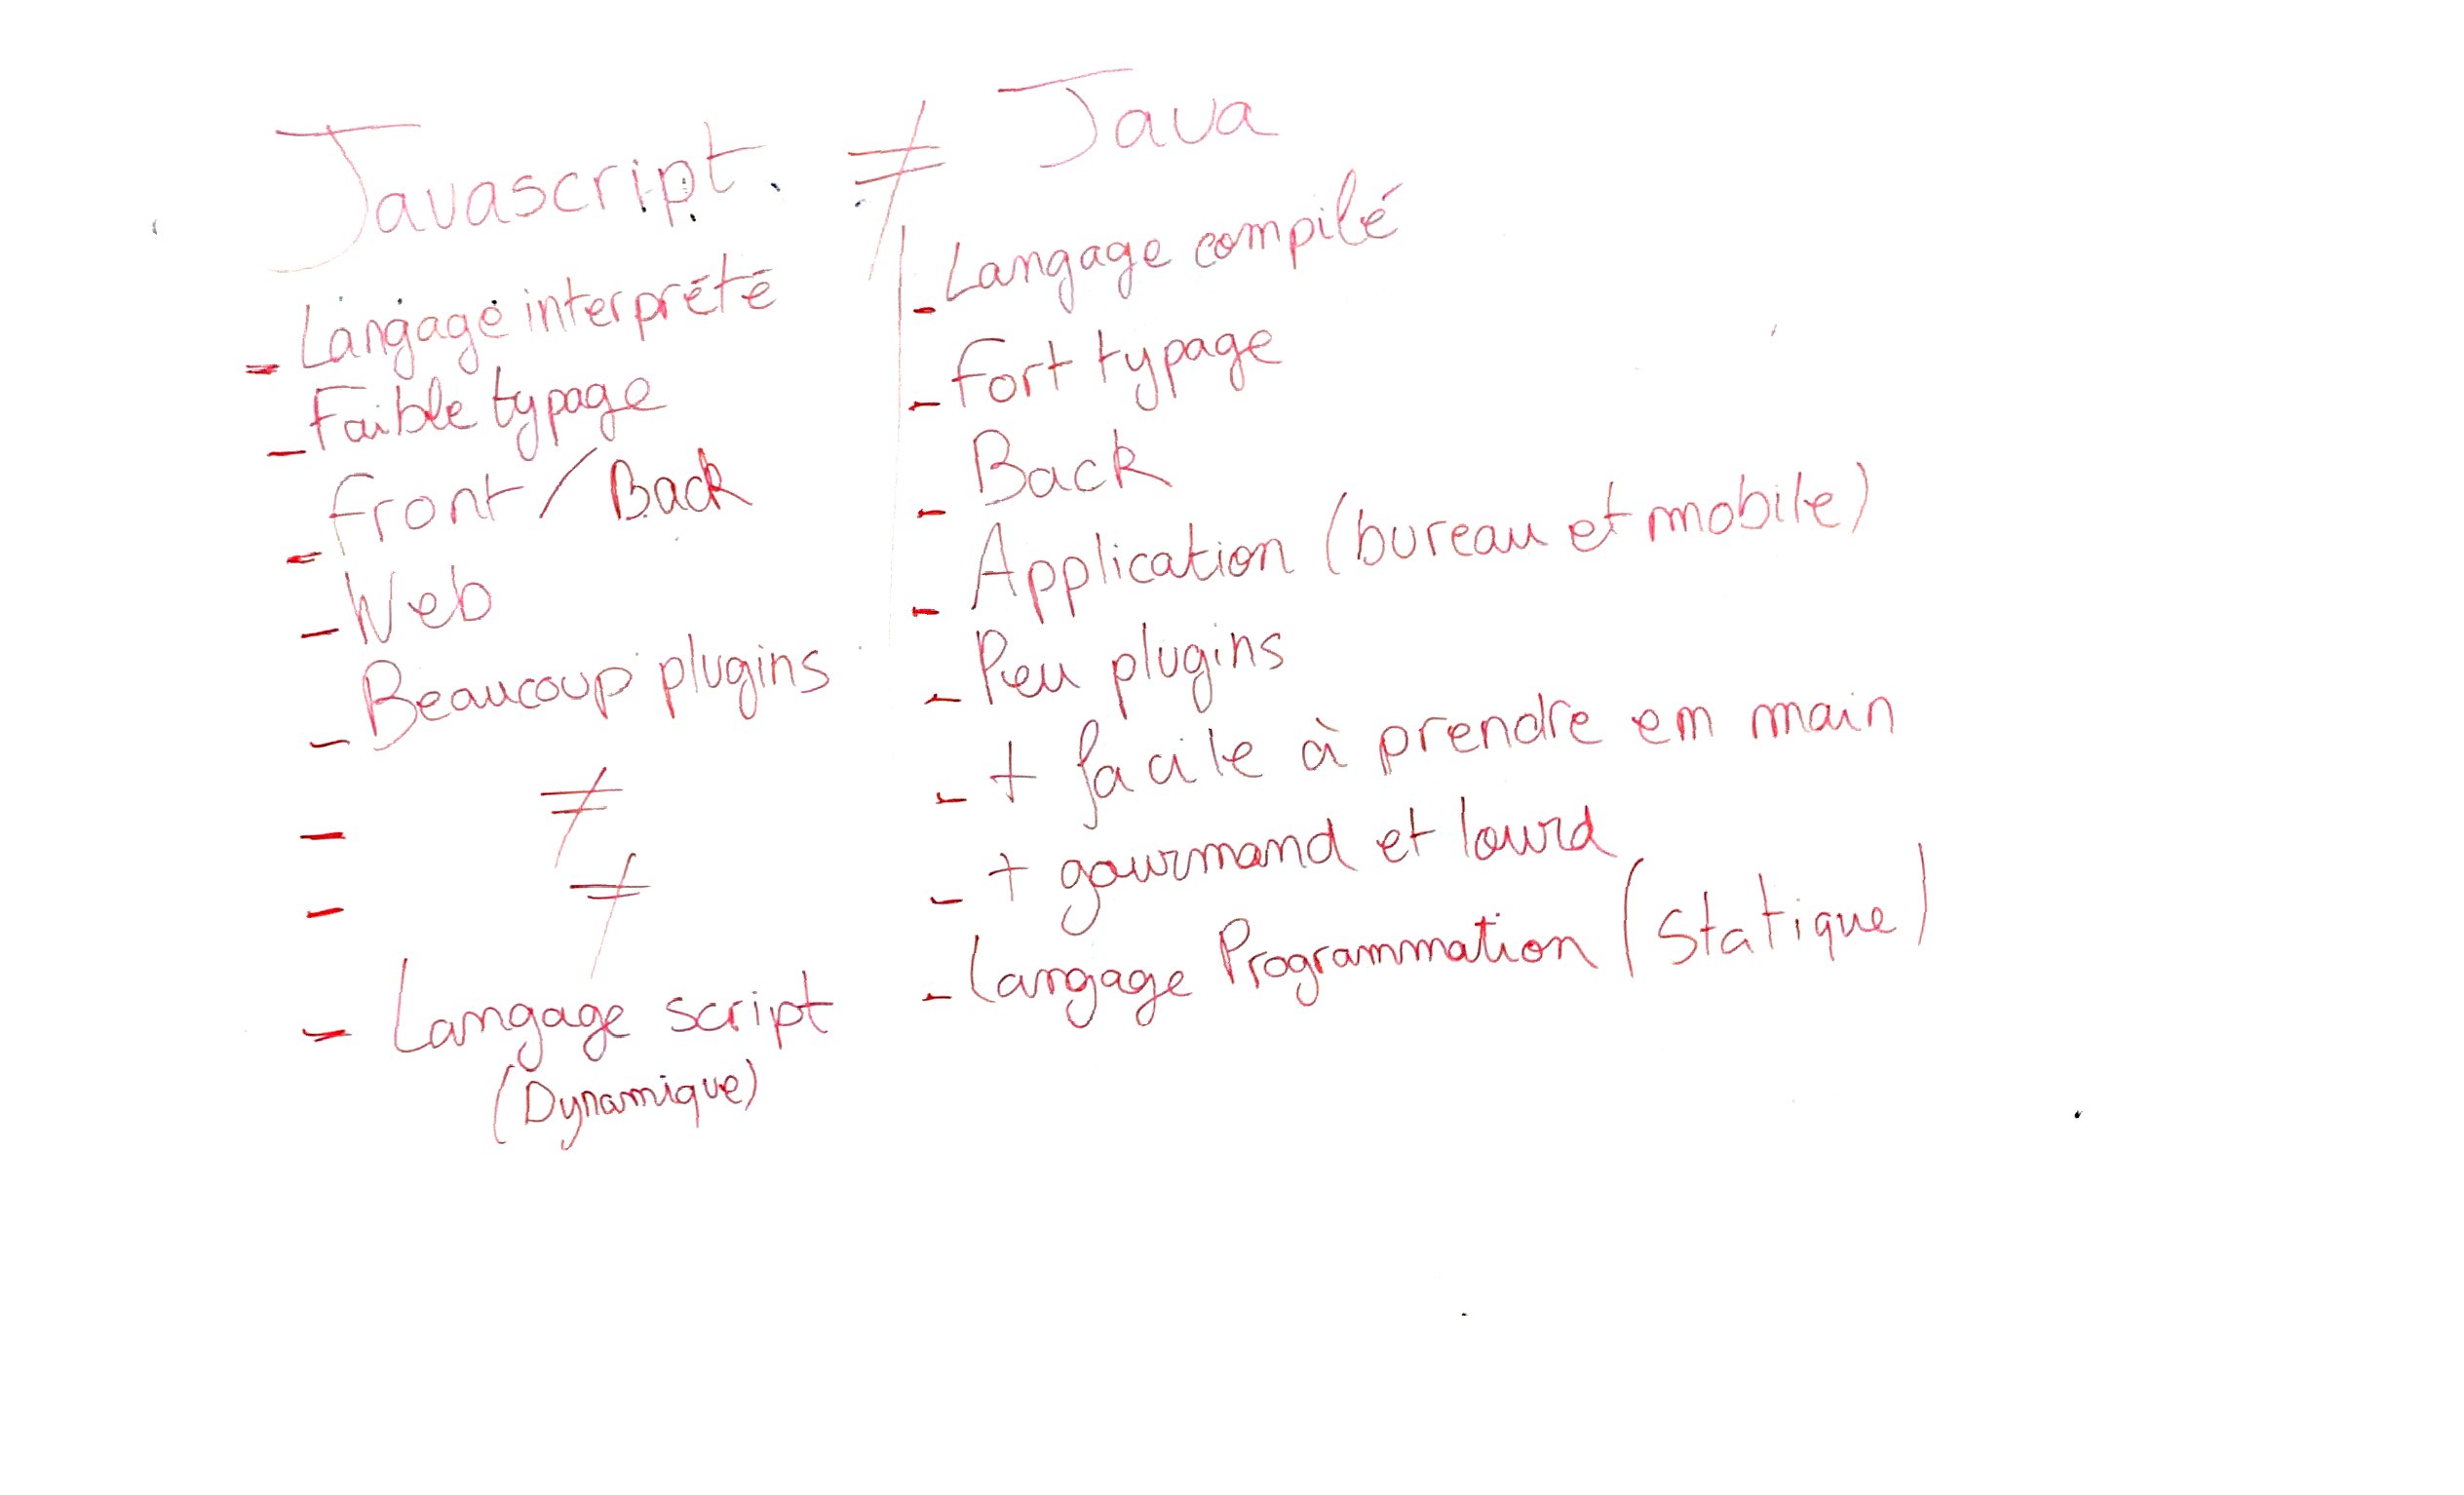 Javascript ≠ Java
- Langage interprété
- Faible typage
- Front / Back
- Web
- Beaucoup plugins
- ≠
- ≠
- Langage script
(Dynamique)
- Langage compilé
- Fort typage
- Back
- Application (bureau et mobile)
- Peu plugins
- + facile à prendre en main
- + gourmand et lourd
- Langage Programmation (Statique)